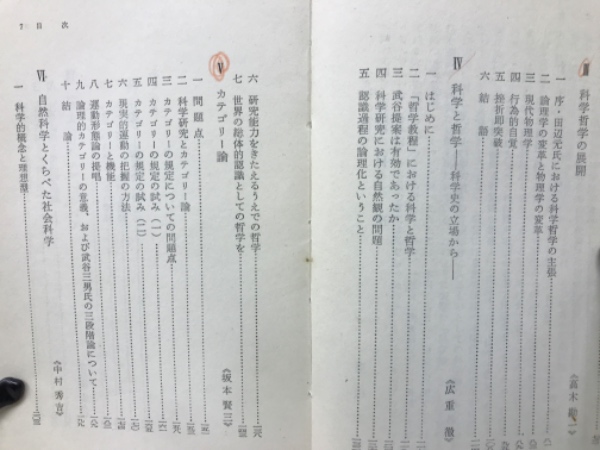 Ⅲ 科学哲学の展開
一 序・田辺元氏における科学哲学の主張
二 論理学の変革と物理学の変革
三 現代物理学
四 行為的自覚
五 挫折即突破
六 結語
Ⅳ 科学と哲学――科学史の立場から――
《広重徹》
一 はじめに
二 「哲学教程」における科学と哲学
三 武谷提案は有効であったか
四 科学研究における自然観の問題
五 認識過程の論理化ということ
目次 7
六 研究能力をきたえるうえでの哲学
七 世界の総体的認識としての哲学を
Ⅴ カテゴリー論
《坂本賢三》
一 問題点
二 科学研究とカテゴリー論
三 カテゴリーの規定についての問題点
四 カテゴリーの規定の試み(一)
五 カテゴリーの規定の試み(二)
六 現実的運動の把握の方法
七 カテゴリーと機能
八 運動形態論の提唱
九 論理的カテゴリーの意義、および武谷三男氏の三段階論について
十 結論
Ⅵ 自然科学とくらべた社会科学
《中村秀吉》
一 科学的概念と理想型